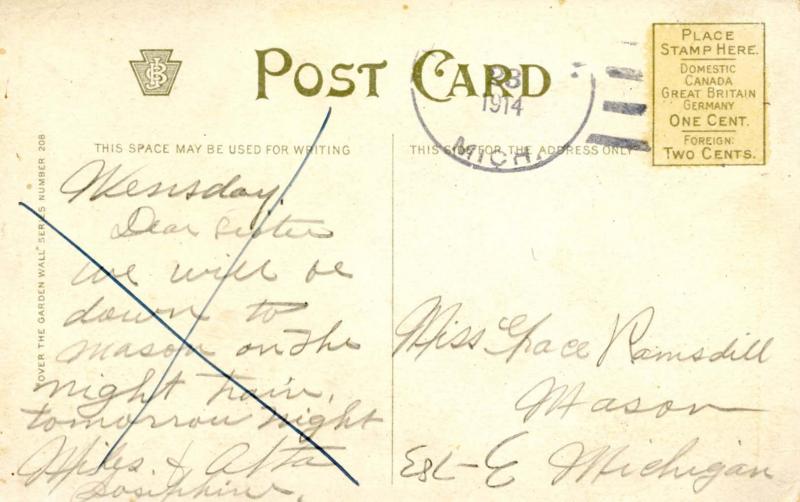 POST CARD
23
1914
MICH.
PLACE
STAMP HERE.
DOMESTIC
CANADA
GREAT BRITAIN
GERMANY
ONE CENT.
FOREIGN:
TWO CENTS.
THIS SPACE MAY BE USED FOR WRITING
THIS SIDE FOR THE ADDRESS ONLY
"OVER THE GARDEN WALL" SERIES NUMBER 208
Wensday
Dear Sister
we will be
down to
Mason on the
night train.
tomorrow night
Miles & Alta
Josephine.
Miss Grace Ramsdill
Mason
Michigan